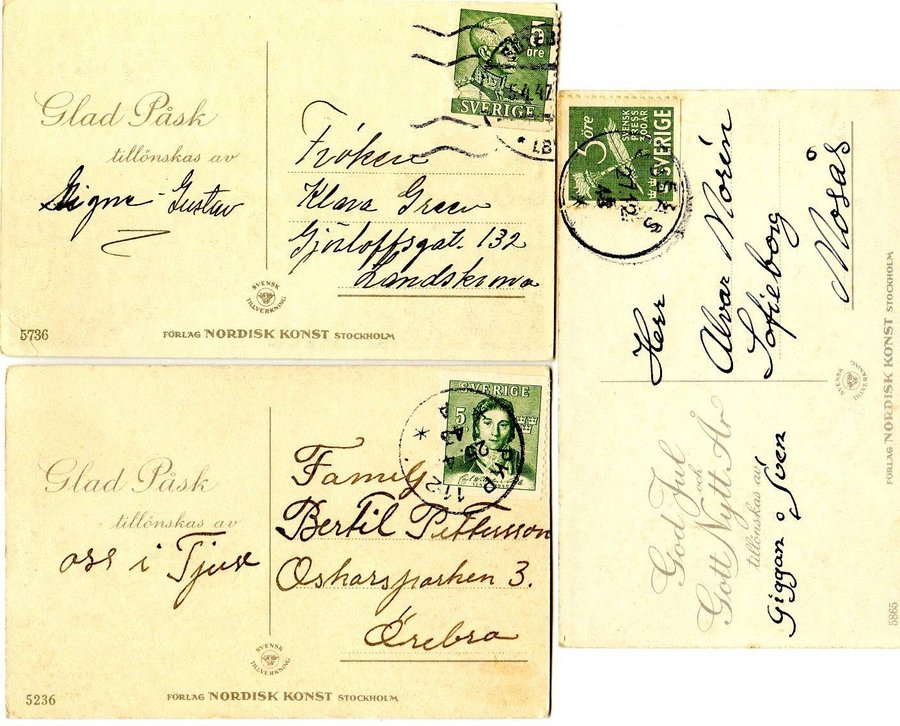 Glad Påsk
tillönskas av
Signe - Gustav
5 öre
SVERIGE
Fröken
Klara Green
Gjörloffsgat. 132
Landskrona
SVENSK
TILLVERKNING
5736
FÖRLAG NORDISK KONST STOCKHOLM
Glad Påsk
tillönskas av
oss i Tjuse
SVERIGE
5
Familj
Bertil Pettersson
Oskarsparken 3.
Örebro
SVENSK
TILLVERKNING
5236
FÖRLAG NORDISK KONST STOCKHOLM
5 öre
SVENSK
PRESS
300 ÅR
SVERIGE
27.12
Herr
Alvar Norén
Sofieborg
Mosås
God Jul
och
Gott Nytt År
tillönskas av
Giggan o Sven
SVENSK
TILLVERKNING
5865
FÖRLAG NORDISK KONST STOCKHOLM